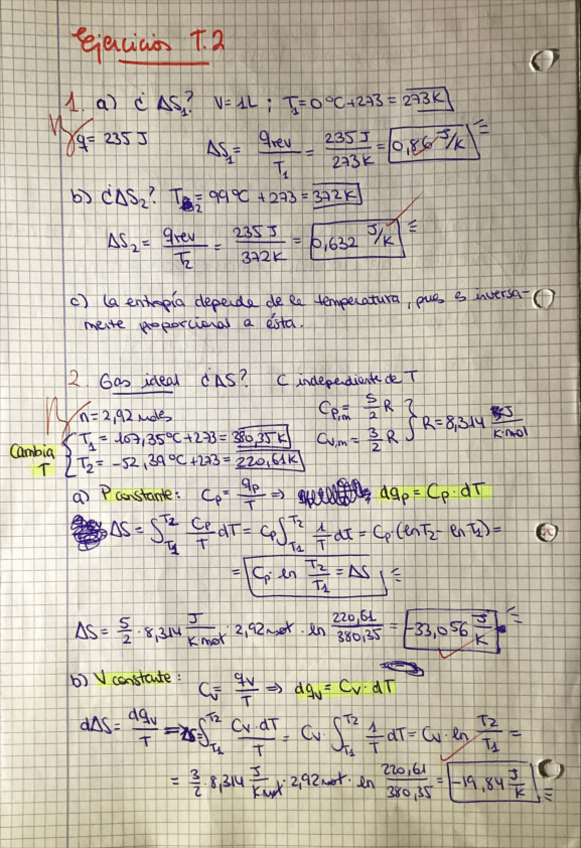 Ejercicios T.2
1. a) ¿ΔS₁? V=1L ; T₁=0ºC+273=273K
q=235 J ΔS₁ = qrev/T₁ = 235 J/273K = 0,86 J/K
b) ¿ΔS₂? T₂=99ºC +273=372K
ΔS₂ = qrev/T₂ = 235 J/372K = 0,632 J/K
c) la entropía depende de la temperatura, pues es inversa-
mente proporcional a ésta.
2. Gas ideal ¿ΔS? C independiente de T
n=2,92 moles
Cp,m = 5/2 R
Cv,m = 3/2 R } R=8,314 J/K·mol
Cambia T { T₁ = 107,35ºC+273=380,35K
T₂ = -52,39ºC+273=220,61K
a) P constante: Cp = qp/T ⇒ dqp = Cp·dT
ΔS = ∫T₁T₂ Cp/T dT = Cp ∫T₁T₂ 1/T dT = Cp (lnT₂ - lnT₁) =
= Cp·ln T₂/T₁ = ΔS
ΔS = 5/2 · 8,314 J/K·mol · 2,92 mol · ln 220,61/380,35 = -33,056 J/K
b) V constante: Cv = qv/T ⇒ dqv = Cv·dT
dΔS = dqv/T ⇒ ∫T₁T₂ Cv·dT/T = Cv · ∫T₁T₂ 1/T dT = Cv·ln T₂/T₁ =
= 3/2 · 8,314 J/K·mol · 2,92 mol · ln 220,61/380,35 = -19,84 J/K